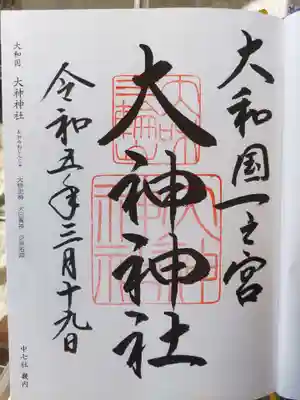 大和国一之宮
大神神社
令和五年三月十九日
大和国 大神神社
中七社 畿内